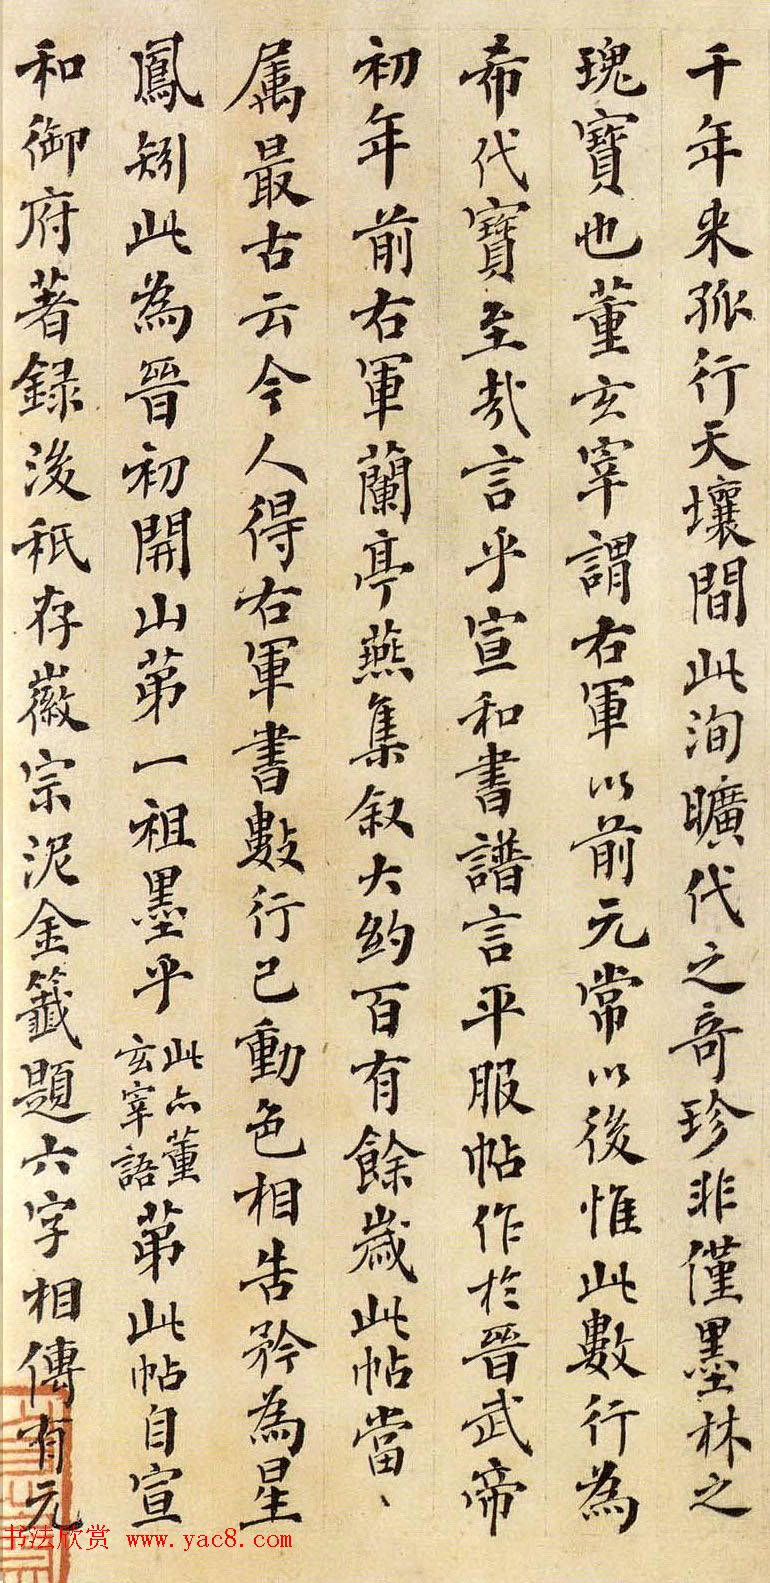 千年来孤行天壤間此洵曠代之奇珍非僅墨林之
瑰寶也董玄宰謂右軍以前元常以後惟此數行為
希代寶至哉言乎宣和書譜言平服帖作於晉武帝
初年前右軍蘭亭燕集叙大約百有餘歲此帖當、
属最古云今人得右軍書數行已動色相告矜為星
鳳矧此為晉初開山苐一祖墨乎此亦董玄宰語苐此帖自宣
和御府著録後秖存徽宗泥金籤題六字相傳有元
书法欣赏 www.yac8.com